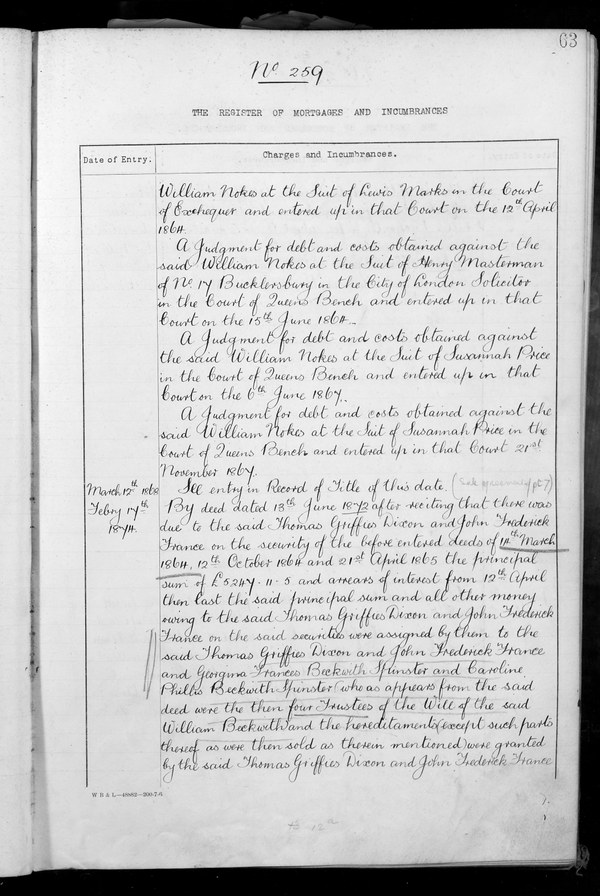 63
No 259
THE REGISTER OF MORTGAGES AND INCUMBRANCES
Date of Entry.
Charges and Incumbrances.
William Nokes at the Suit of Lewis Marks in the Court
of Exchequer and entered up in that Court on the 12th April
1864.
A Judgment for debt and costs obtained against the
said William Nokes at the Suit of Henry Masterman
of No. 17 Bucklersbury in the City of London Solicitor
in the Court of Queens Bench and entered up in that
Court on the 15th June 1864.
A Judgment for debt and costs obtained against
the said William Nokes at the Suit of Susannah Price
in the Court of Queens Bench and entered up in that
Court on the 6th June 1867.
A Judgment for debt and costs obtained against the
said William Nokes at the Suit of Susannah Price in the
Court of Queens Bench and entered up in that Court 21st
November 1867.
March 12th 1868 See entry in Record of Title of this date.
Febry 17th By deed dated 13th June 1872 after reciting that there was
1874. due to the said Thomas Griffies Dixon and John Frederick
France on the security of the before entered deeds of 14th March
1864, 12th October 1864 and 21st April 1865 the principal
sum of £5,247. 11. 5 and arrears of interest from 12th April
then last the said principal sum and all other money
owing to the said Thomas Griffies Dixon and John Frederick
France on the said securities were assigned by them to the
said Thomas Griffies Dixon and John Frederick France
and Georgina Frances Beckwith Spinster and Caroline
Phillis Beckwith Spinster (who as appears from the said
deed were the then four Trustees of the Will of the said
William Beckwith) and the hereditaments (except such parts
thereof as were then sold as therein mentioned) were granted
by the said Thomas Griffies Dixon and John Frederick France
W B & L—